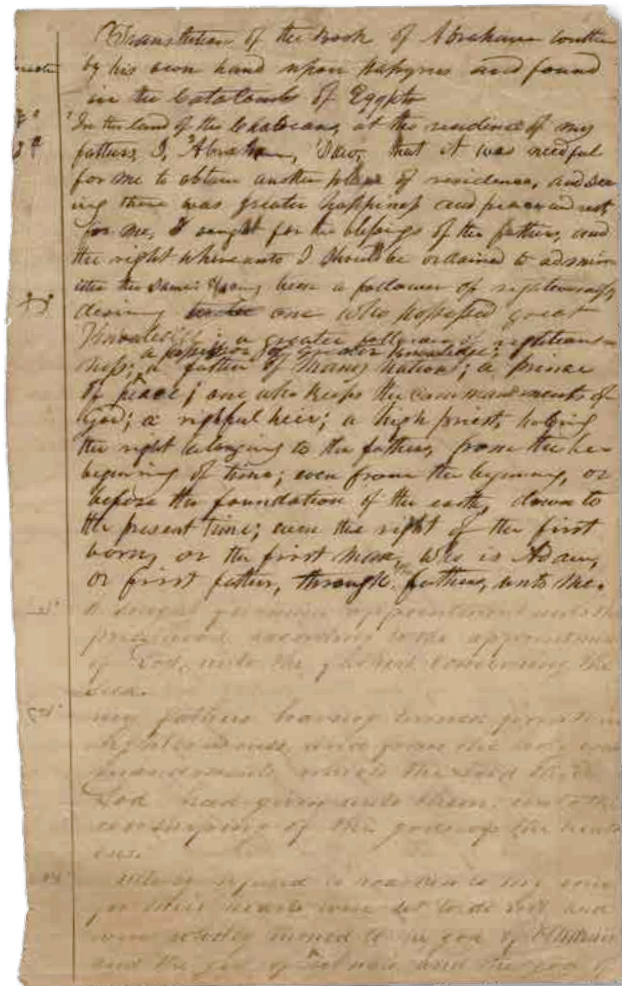 Translation of the Book of Abraham written
by his own hand upon papyrus and found
in the Catacombs of Egypt
In the land of the Chaldeans, at the residence of my
fathers, I, Abraham, saw, that it was needful
for me to obtain another place of residence, and see-
ing there was greater happiness and peace and rest
for me, I sought for the blessings of the fathers, and
the right whereunto I should be ordained to admin-
ister the same: Having been a follower of righteousness,
desiring to be one who possessed great
Knowledge; a greater follower of righteous-
ness; a possessor of greater knowledge;
a father of many nations; a prince
of peace; one who keeps the commandments of
God; a rightful heir; a high priest, holding
the right belonging to the fathers, from the be-
begining of time; even from the begining, or
before the foundation of the earth, down to
the present time; even the right of the first
born, or the first man, who is Adam,
or first father, through fathers, unto me.
I sought for mine appointment unto the
priesthood according to the appointment
of God, unto the fathers concerning the
seed.
my fathers having turned from their
righteousness, and from the holy com-
mandments which the Lord their
God had given unto them, unto the
worshiping of the gods of the heath-
ens.
utterly refused to hearken to my voice
for their hearts were set to do evil and
were wholly turned to the god of
and the god of and the god of